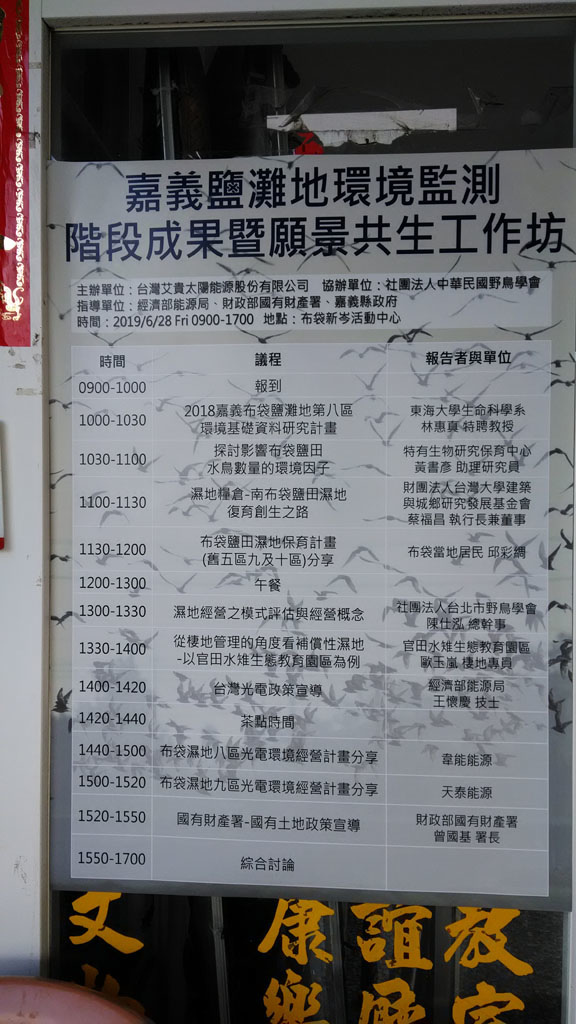 嘉義鹽灘地環境監測
階段成果暨願景共生工作坊
主辦單位：台灣艾貴太陽能源股份有限公司 協辦單位：社團法人中華民國野鳥學會
指導單位：經濟部能源局、財政部國有財產署、嘉義縣政府
時間：2019/6/28 Fri 0900-1700 地點：布袋新岑活動中心
時間 議程 報告者與單位
0900-1000 報到
1000-1030 2018嘉義布袋鹽灘地第八區 東海大學生命科學系
環境基礎資料研究計畫 林惠真 特聘教授
1030-1100 探討影響布袋鹽田 特有生物研究保育中心
水鳥數量的環境因子 黃書彥 助理研究員
1100-1130 濕地糧倉-南布袋鹽田濕地 財團法人台灣大學建築
復育創生之路 與城鄉研究發展基金會
蔡福昌 執行長兼董事
1130-1200 布袋鹽田濕地保育計畫 布袋當地居民 邱彩綢
(舊五區九及十區)分享
1200-1300 午餐
1300-1330 濕地經營之模式評估與經營概念 社團法人台北市野鳥學會
陳仕泓 總幹事
1330-1400 從棲地管理的角度看補償性濕地 官田水雉生態教育園區
-以官田水雉生態教育園區為例 歐玉嵐 棲地專員
1400-1420 台灣光電政策宣導 經濟部能源局
王懷慶 技士
1420-1440 茶點時間
1440-1500 布袋濕地八區光電環境經營計畫分享 韋能能源
1500-1520 布袋濕地九區光電環境經營計畫分享 天泰能源
1520-1550 國有財產署-國有土地政策宣導 財政部國有財產署
曾國基 署長
1550-1700 綜合討論
文 康 誼 教
樂 室